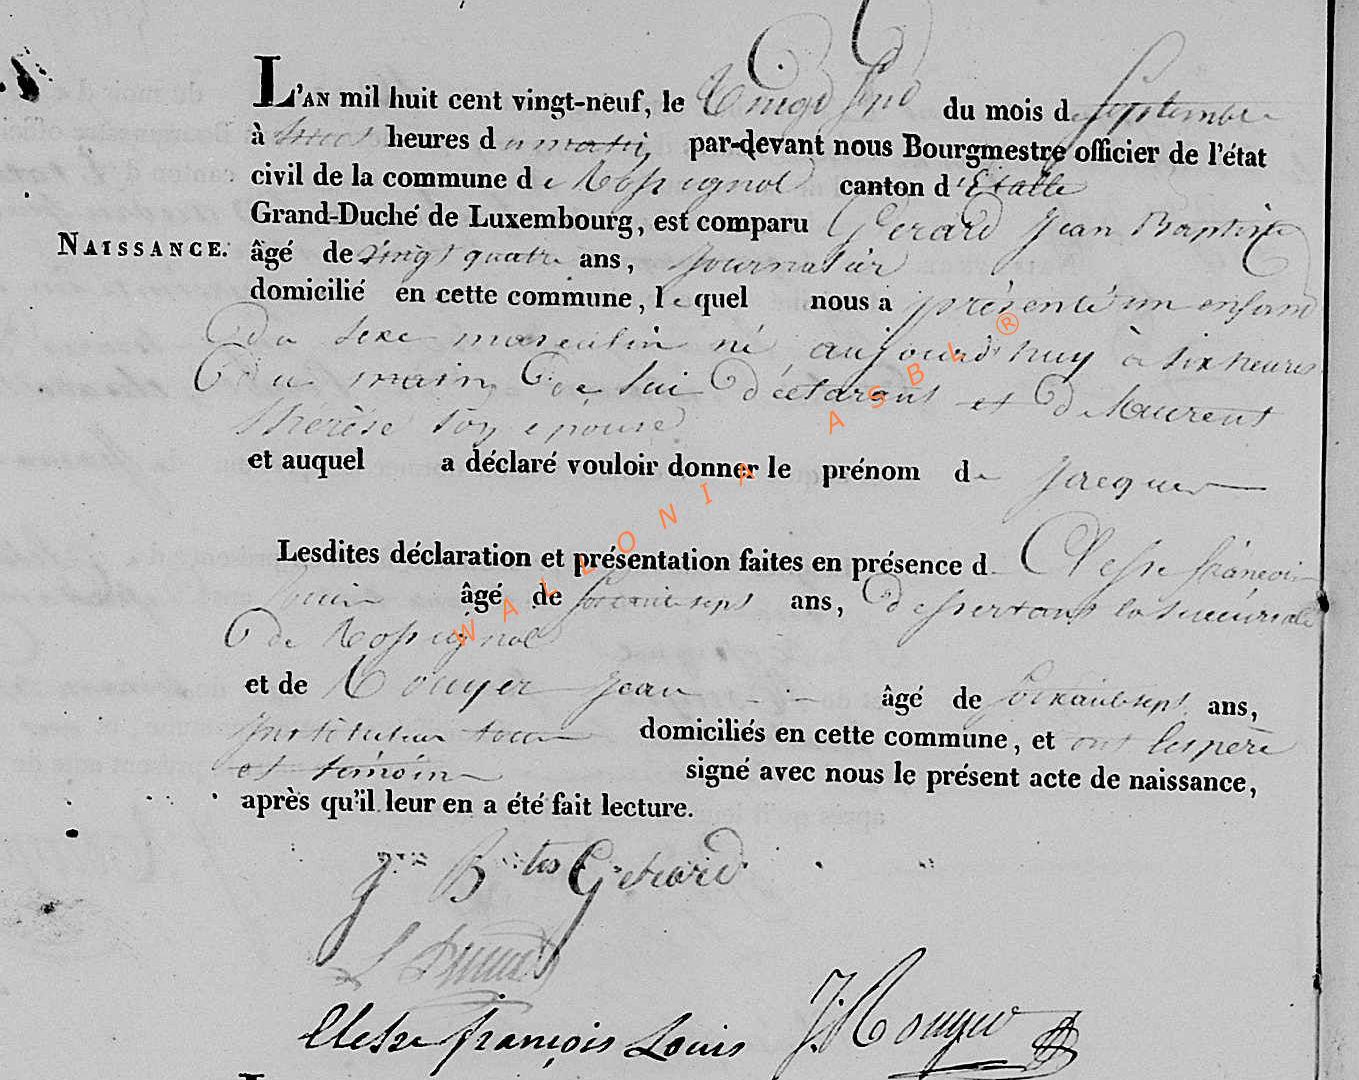 L'AN mil huit cent vingt-neuf, le Vingt Sept du mois de Septembre
à heures du matin par-devant nous Bourgmestre officier de l'état
civil de la commune de Rossignol canton d'Etalle
Grand-Duché de Luxembourg, est comparu Gerard Jean Baptiste
NAISSANCE. âgé de vingt quatre ans, journalier
domicilié en cette commune, lequel nous a présenté un enfant
du sexe masculin né aujourd'huy à six heures
du matin, de lui déclarant et de Laurent
thérèse son épouse
et auquel a déclaré vouloir donner le prénom de Jacques
Lesdites déclaration et présentation faites en présence d Clesse françois
Louis âgé de soixante sept ans, desservant la succursale
de Rossignol
et de Rouyer Jean âgé de soixante sept ans,
instituteur domiciliés en cette commune, et ont les père
et témoin signé avec nous le présent acte de naissance,
après qu'il leur en a été fait lecture.
Jn Btes Gerard
Clesse françois Louis J. Rouyer
WALLONIA ASBL ®